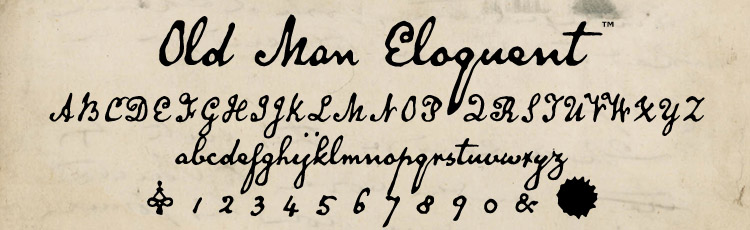 Old Man Eloquent™
ABCDEFGHIJKLMNOPQRSTUVWXYZ
abcdefghijklmnopqrstuvwxyz
1 2 3 4 5 6 7 8 9 0 &